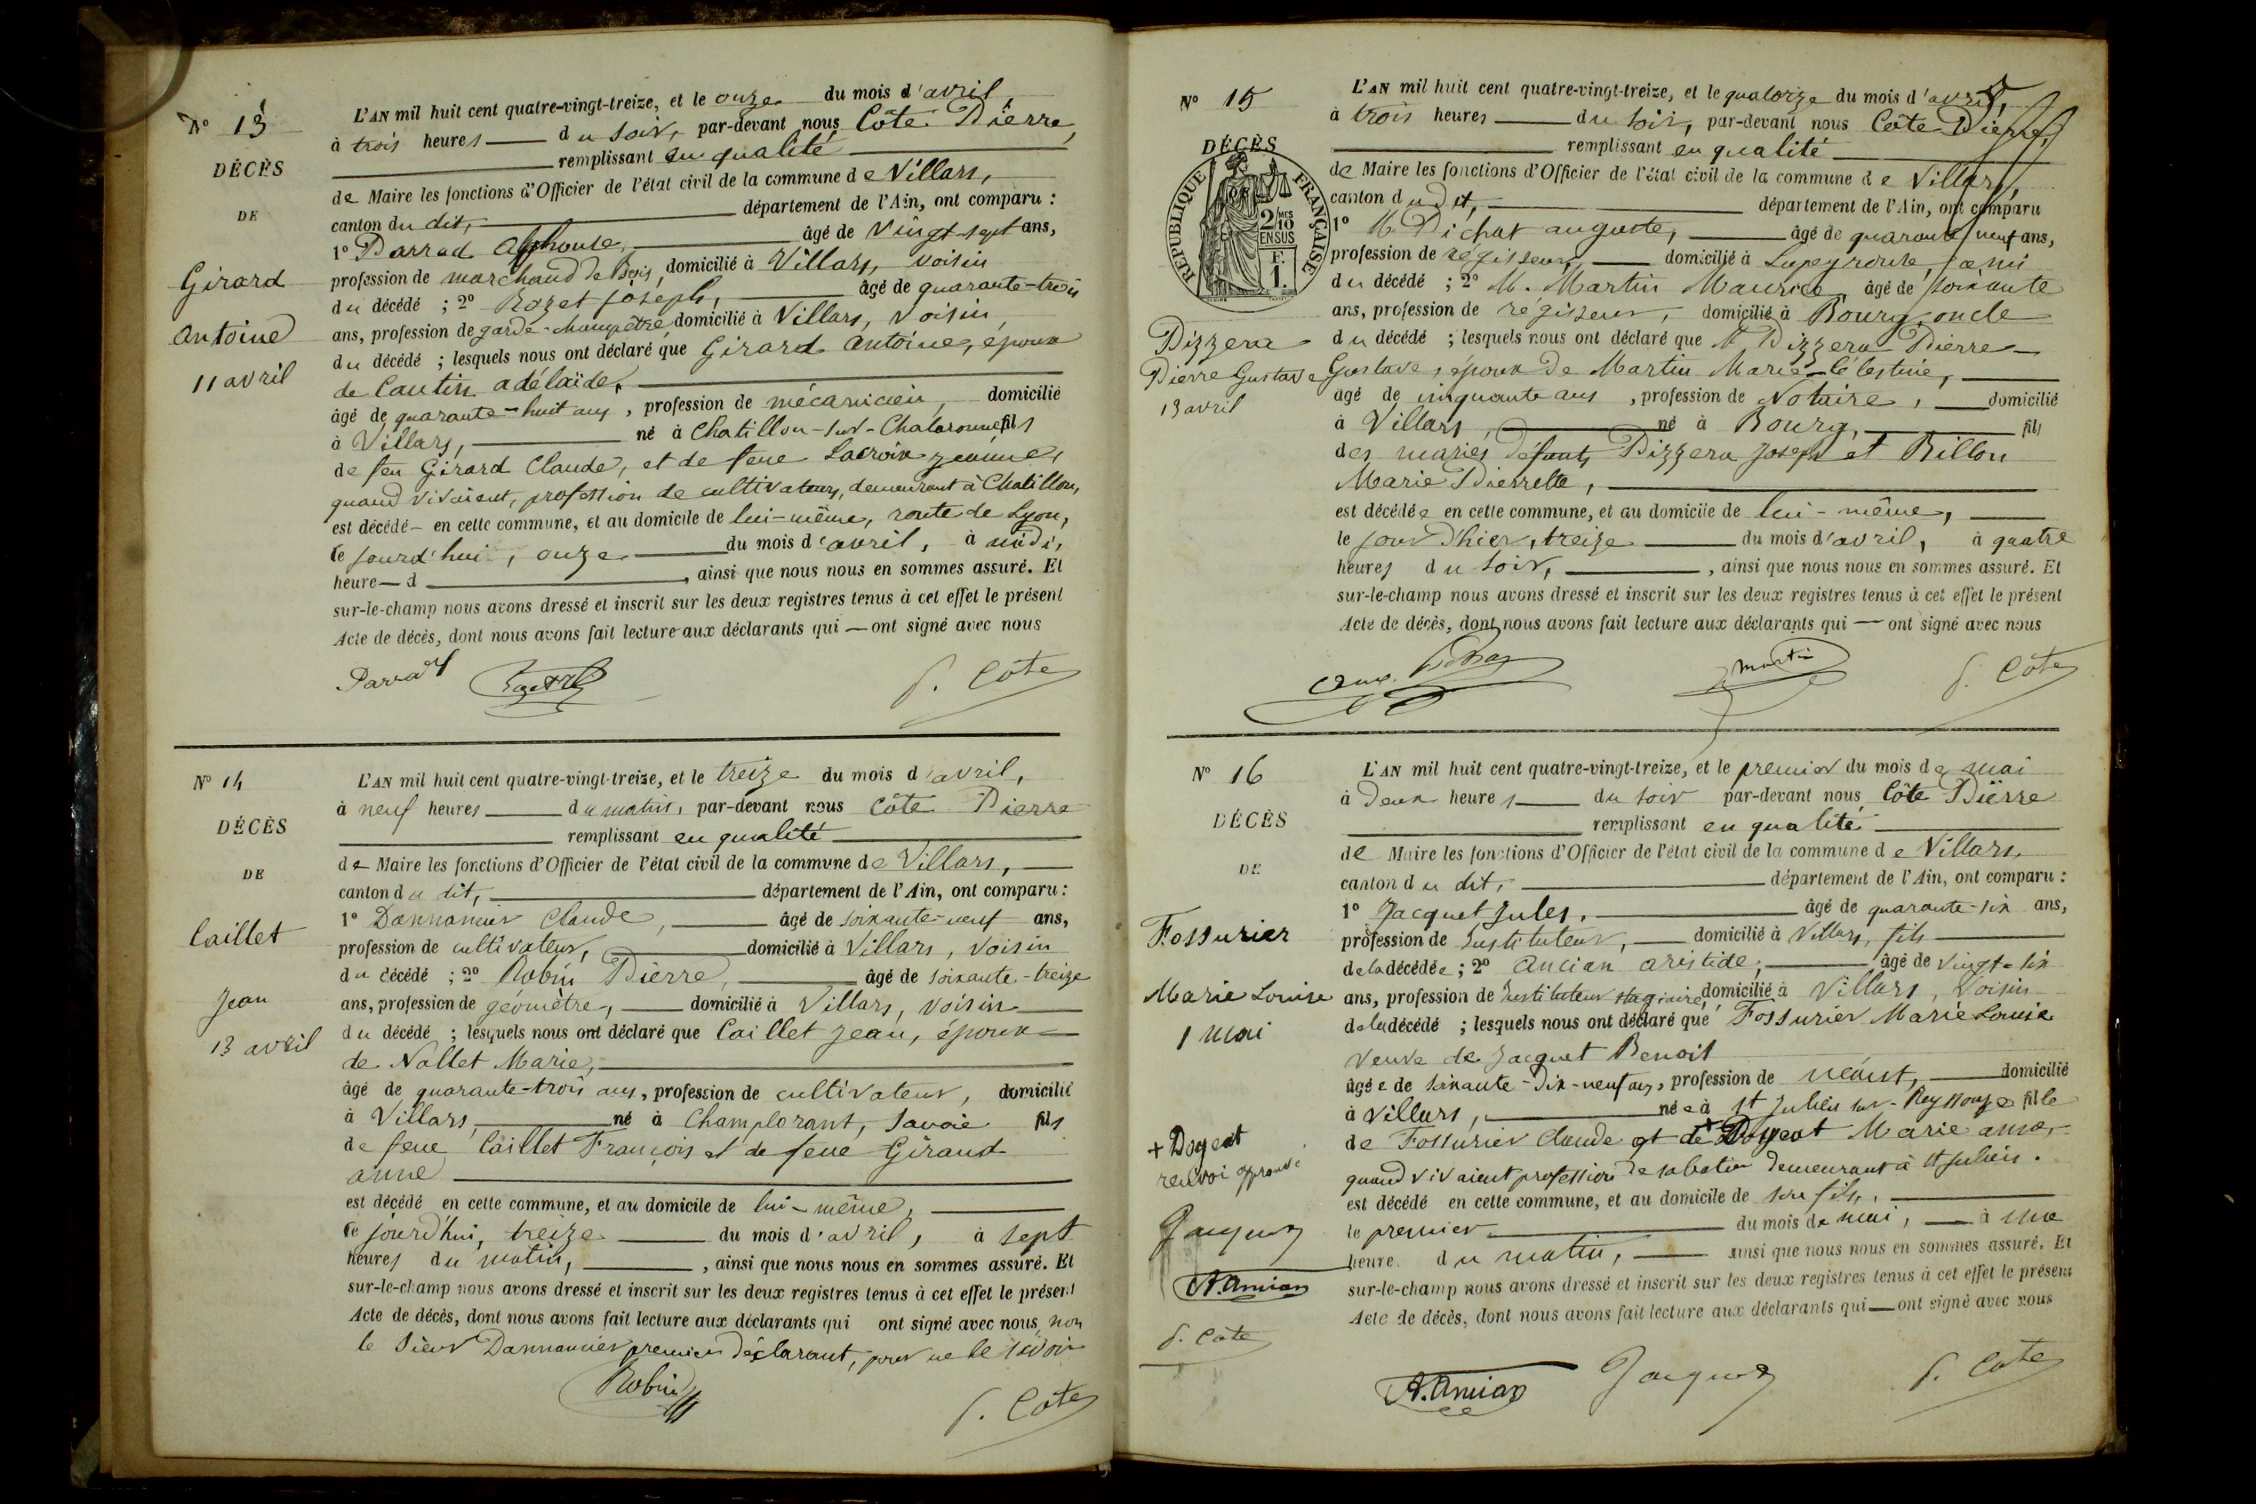 N° 13
DÉCÈS
DE
Girard
Antoine
11 avril
L'AN mil huit cent quatre-vingt-treize, et le onze du mois d'avril,
à trois heures du soir, par-devant nous Côte Pierre,
remplissant en qualité
de Maire les fonctions d'Officier de l'état civil de la commune de Villars,
canton du dit, département de l'Ain, ont comparu :
1° Parrad Alphonse, âgé de vingt-sept ans,
profession de marchand de bois, domicilié à Villars, voisin
du décédé ; 2° Rozet Joseph, âgé de quarante-trois
ans, profession de garde-champêtre domicilié à Villars, voisin,
du décédé ; lesquels nous ont déclaré que Girard Antoine, époux
de Cautin Adélaïde,
âgé de quarante-huit ans, profession de mécanicien, domicilié
à Villars, né à Chatillon-sur-Chalaronne fils
de feu Girard Claude, et de feue Lacroix Jeanne,
quand vivaient, profession de cultivateurs, demeurant à Chatillon,
est décédé en cette commune, et au domicile de lui-même, route de Lyon,
le jourd'hui, onze du mois d'avril, à midi,
heure d , ainsi que nous nous en sommes assuré. Et
sur-le-champ nous avons dressé et inscrit sur les deux registres tenus à cet effet le présent
Acte de décès, dont nous avons fait lecture aux déclarants qui ont signé avec nous
P. Côte
N° 14
DÉCÈS
DE
Caillet
Jean
13 avril
L'AN mil huit cent quatre-vingt-treize, et le treize du mois d'avril,
à neuf heures du matin, par-devant nous Côte Pierre
remplissant en qualité
de Maire les fonctions d'Officier de l'état civil de la commune de Villars,
canton du dit, département de l'Ain, ont comparu :
1° Dannancier Claude, âgé de soixante-neuf ans,
profession de cultivateur, domicilié à Villars, voisin
du décédé ; 2° Robin Pierre, âgé de soixante-treize
ans, profession de géomètre, domicilié à Villars, voisin
du décédé ; lesquels nous ont déclaré que Caillet Jean, époux
de Nallet Marie,
âgé de quarante-trois ans, profession de cultivateur, domicilié
à Villars, né à Champlorant, Savoie fils
de feue Caillet François et de feue Giraud
Anne
est décédé en cette commune, et au domicile de lui-même,
le jourd'hui, treize du mois d'avril, à sept
heures du matin, , ainsi que nous nous en sommes assuré. Et
sur-le-champ nous avons dressé et inscrit sur les deux registres tenus à cet effet le présent
Acte de décès, dont nous avons fait lecture aux déclarants qui ont signé avec nous, non
le sieur Dannancier premier déclarant, pour ne le savoir
Robin
P. Côte
N° 15
DÉCÈS
REPUBLIQUE FRANÇAISE
2/10MES
EN SUS
F.
1.
Pizzera
Pierre Gustave
13 avril
L'AN mil huit cent quatre-vingt-treize, et le quatorze du mois d'avril,
à trois heures du soir, par-devant nous Côte Pierre,
remplissant en qualité
de Maire les fonctions d'Officier de l'état civil de la commune de Villars,
canton du dit, département de l'Ain, ont comparu
1° M. Pichat Auguste, âgé de quarante neuf ans,
profession de régisseur, domicilié à Lapeyrouse, ami
du décédé ; 2° M. Martin Maurice âgé de soixante
ans, profession de régisseur, domicilié à Bourg, oncle
du décédé ; lesquels nous ont déclaré que M. Pizzera Pierre
Gustave, époux de Martin Marie-Célestine,
âgé de cinquante ans, profession de Notaire, domicilié
à Villars, né à Bourg, fils
des mariés défunts Pizzera Joseph et Billon
Marie Pierrette,
est décédé en cette commune, et au domicile de lui-même,
le jour d'hier, treize du mois d'avril, à quatre
heures du soir, , ainsi que nous nous en sommes assuré. Et
sur-le-champ nous avons dressé et inscrit sur les deux registres tenus à cet effet le présent
Acte de décès, dont nous avons fait lecture aux déclarants qui ont signé avec nous
Martin
P. Côte
N° 16
DÉCÈS
DE
Fossurier
Marie Louise
1 mai
+ Doyeat
renvoi approuvé
Jacquet
A. Ancian
P. Côte
L'AN mil huit cent quatre-vingt-treize, et le premier du mois de mai
à deux heures du soir par-devant nous Côte Pierre
remplissant en qualité
de Maire les fonctions d'Officier de l'état civil de la commune de Villars,
canton du dit, département de l'Ain, ont comparu :
1° Jacquet Jules, âgé de quarante-six ans,
profession de Instituteur, domicilié à Villars, fils
de la décédée ; 2° Ancian Aristide, âgé de vingt-six
ans, profession de Instituteur stagiaire, domicilié à Villars, voisin
de la décédé ; lesquels nous ont déclaré que Fossurier Marie Louise
veuve de Jacquet Benoit
âgée de soixante-dix-neuf ans, profession de néant, domicilié
à Villars, née à St Julien sur-Reyssouze fille
de Fossurier Claude et de + Doyeat Marie Anne,
quand vivaient profession de sabotier demeurant à St Julien.
est décédé en cette commune, et au domicile de son fils,
le premier du mois de mai, à une
heure du matin, ainsi que nous nous en sommes assuré. Et
sur-le-champ nous avons dressé et inscrit sur les deux registres tenus à cet effet le présent
Acte de décès, dont nous avons fait lecture aux déclarants qui ont signé avec nous
A. Ancian Jacquet P. Côte